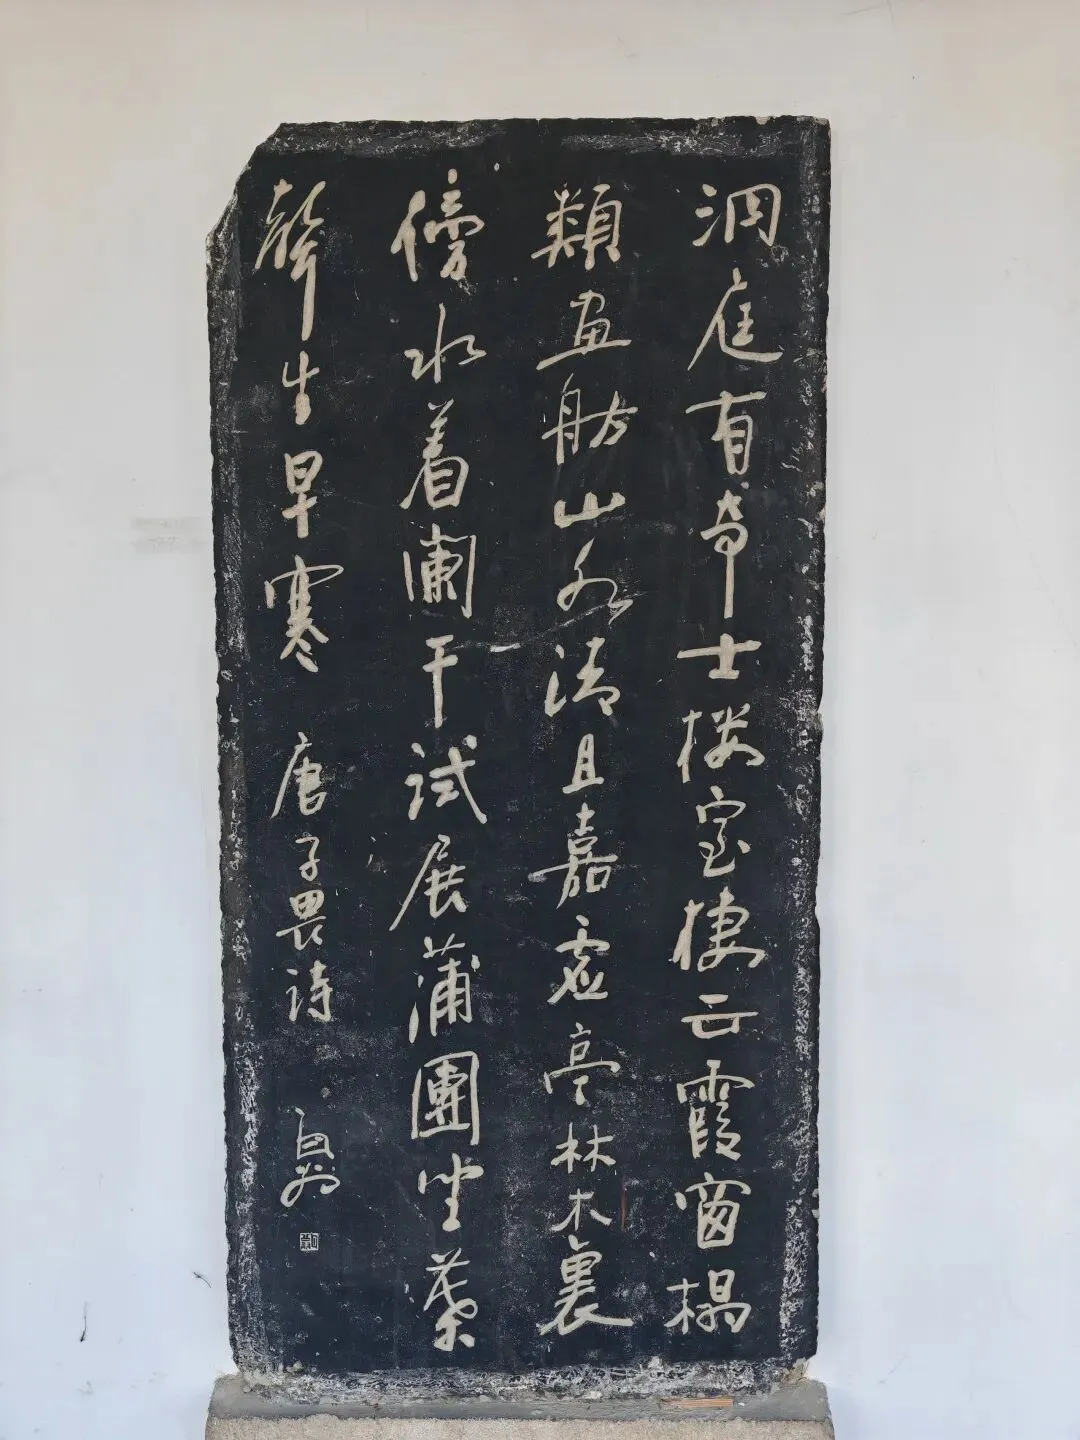 洞庭有奇士楼室棲云霞窗榻
類画舫山水清且嘉虚亭林木裏
傍水着阑干试展蒲團坐葉
聲生早寒 唐子畏诗